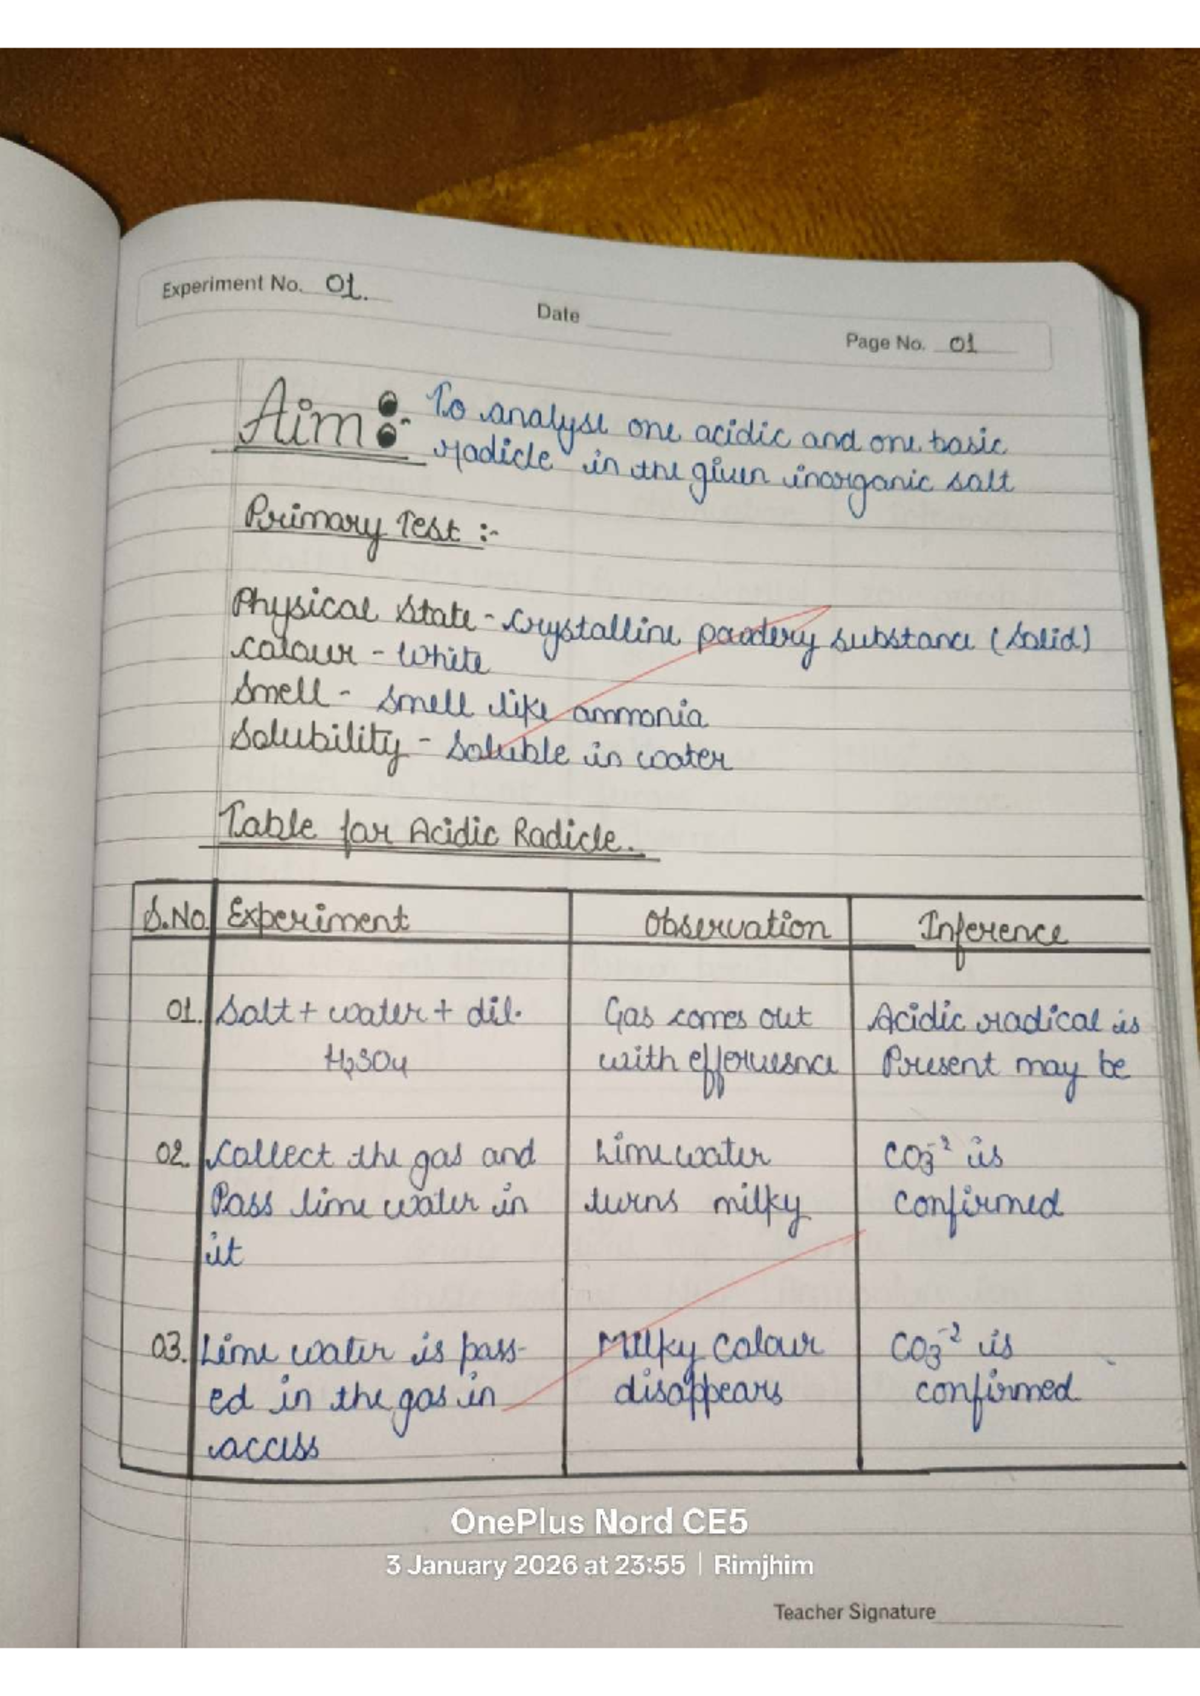 Experiment No. 01.
Date
Page No. 01
Aim :- To analyse one acidic and one basic
radicle in the given inorganic salt
Primary Test :-
Physical State - Crystalline powdery substance (Solid)
Colour - White
Smell - Smell like ammonia
Solubility - Soluble in water
Table for Acidic Radicle.
S.No. Experiment Observation Inference
01. Salt + water + dil. Gas comes out Acidic radical is
H₂SO₄ with effervesnce Present may be
02. Collect the gas and Lime water CO₃⁻² is
Pass lime water in turns milky confirmed
it
03. Lime water is pass- Milky colour CO₃⁻² is
ed in the gas in disappears confirmed
access
OnePlus Nord CE5
3 January 2026 at 23:55 | Rimjhim
Teacher Signature